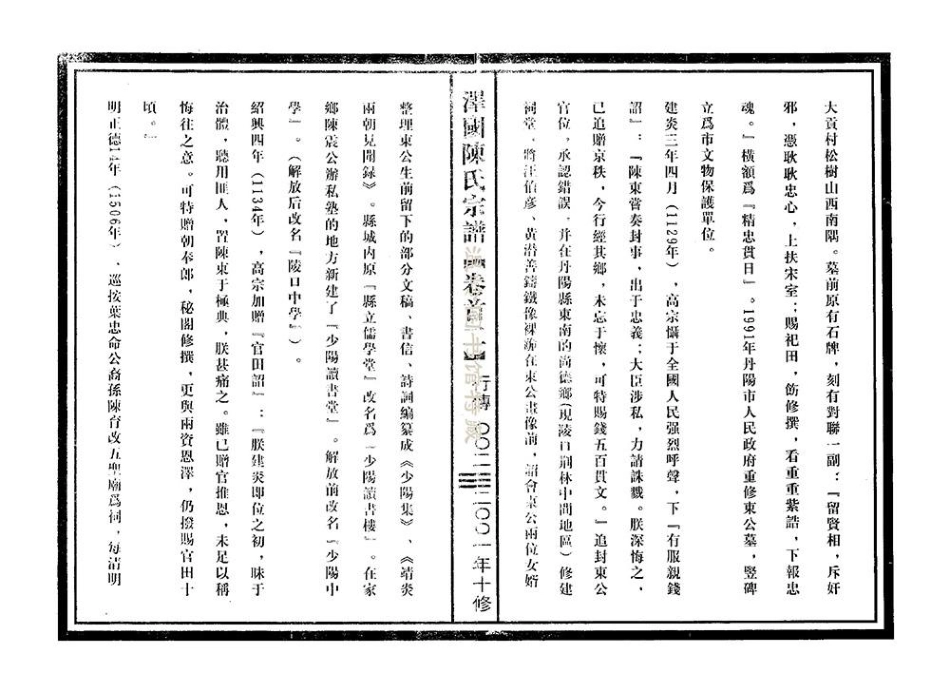 大貢村松樹山西南隅。墓前原有石牌，刻有對聯一副：『留賢相，斥奸
邪，憑耿耿忠心，上扶宋室；賜祀田，飭修撰，看重重紫誥，下報忠
魂。』橫額爲『精忠貫日』。1991年丹陽市人民政府重修東公墓，竪碑
立爲市文物保護單位。
建炎三年四月（1129年），高宗懾于全國人民强烈呼聲，下『有服親錢
詔』：『陳東嘗奏封事，出于忠義；大臣涉私，力請誅戮。朕深悔之，
已追贈京秩，今行經其鄉，未忘于懷，可特賜錢五百貫文。』追封東公
官位，承認錯誤，并在丹陽縣東南的尚德鄉（現陵口荆林中間地區）修建
祠堂，將汪伯彦、黄潜善鑄鐵像裸跪在東公畫像前，詔會東公兩位女婿
澤國陳氏宗譜
卷首
行傳
二〇〇一年十修
整理東公生前留下的部分文稿、書信、詩詞編纂成《少陽集》、《靖炎
兩朝見聞録》。縣城内原『縣立儒學堂』改名爲『少陽讀書樓』。在家
鄉陳震公辦私塾的地方新建了『少陽讀書堂』。解放前改名『少陽中
學』。（解放后改名『陵口中學』）。
紹興四年（1134年），高宗加贈『官田詔』：『朕建炎即位之初，昧于
治體，聽用匪人，置陳東于極典，朕甚痛之。雖已贈官推恩，未足以稱
悔往之意。可特贈朝奉郎，秘閣修撰，更與兩資恩澤，仍撥賜官田十
頃。』
明正德14年（1506年），巡按葉忠命公裔孫陳育改五聖廟爲祠，每清明